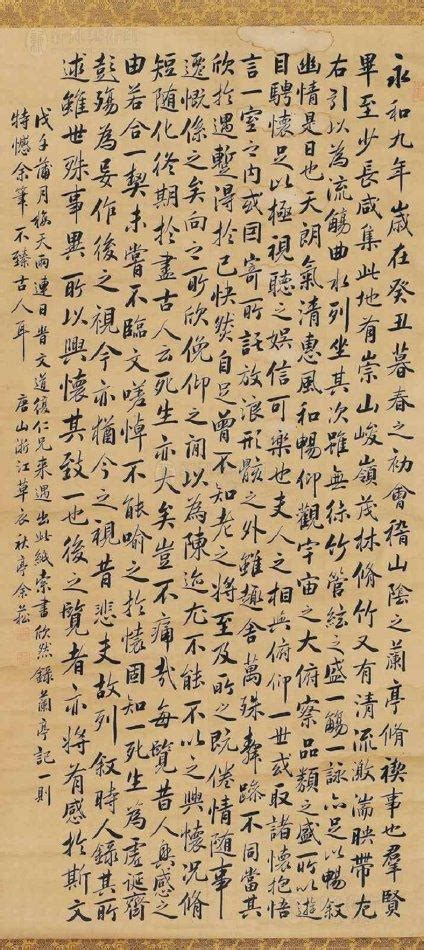 永和九年歲在癸丑暮春之初會稽山陰之蘭亭脩禊事也羣賢
畢至少長咸集此地有崇山峻嶺茂林脩竹又有清流激湍映帶左
右引以為流觴曲水列坐其次雖無絲竹管絃之盛一觴一詠亦足以暢叙
幽情是日也天朗氣清惠風和暢仰觀宇宙之大俯察品類之盛所以遊
目騁懷足以極視聽之娱信可樂也夫人之相與俯仰一世或取諸懷抱悟
言一室之内或因寄所託放浪形骸之外雖趣舍萬殊靜躁不同當其
欣於遇蹔得於己快然自足曾不知老之將至及所之既倦情隨事
遷慨係之矣向之所欣俛仰之間以為陳迹尤不能不以之興懷況脩
短隨化終期於盡古人云死生亦大矣豈不痛哉每覽昔人興感之
由若合一契未嘗不臨文嗟悼不能喻之於懷固知一死生為虛誕齊
彭殤為妄作後之視今亦猶今之視昔悲夫故列叙時人錄其所
述雖世殊事異所以興懷其致一也後之覽者亦將有感於斯文
戊子蒲月梅天雨連日昔文道復仁兄來遇出此紙索書欣然錄蘭亭記一則
特憾余筆不臻古人耳
唐山浙江草衣秋亭余崧